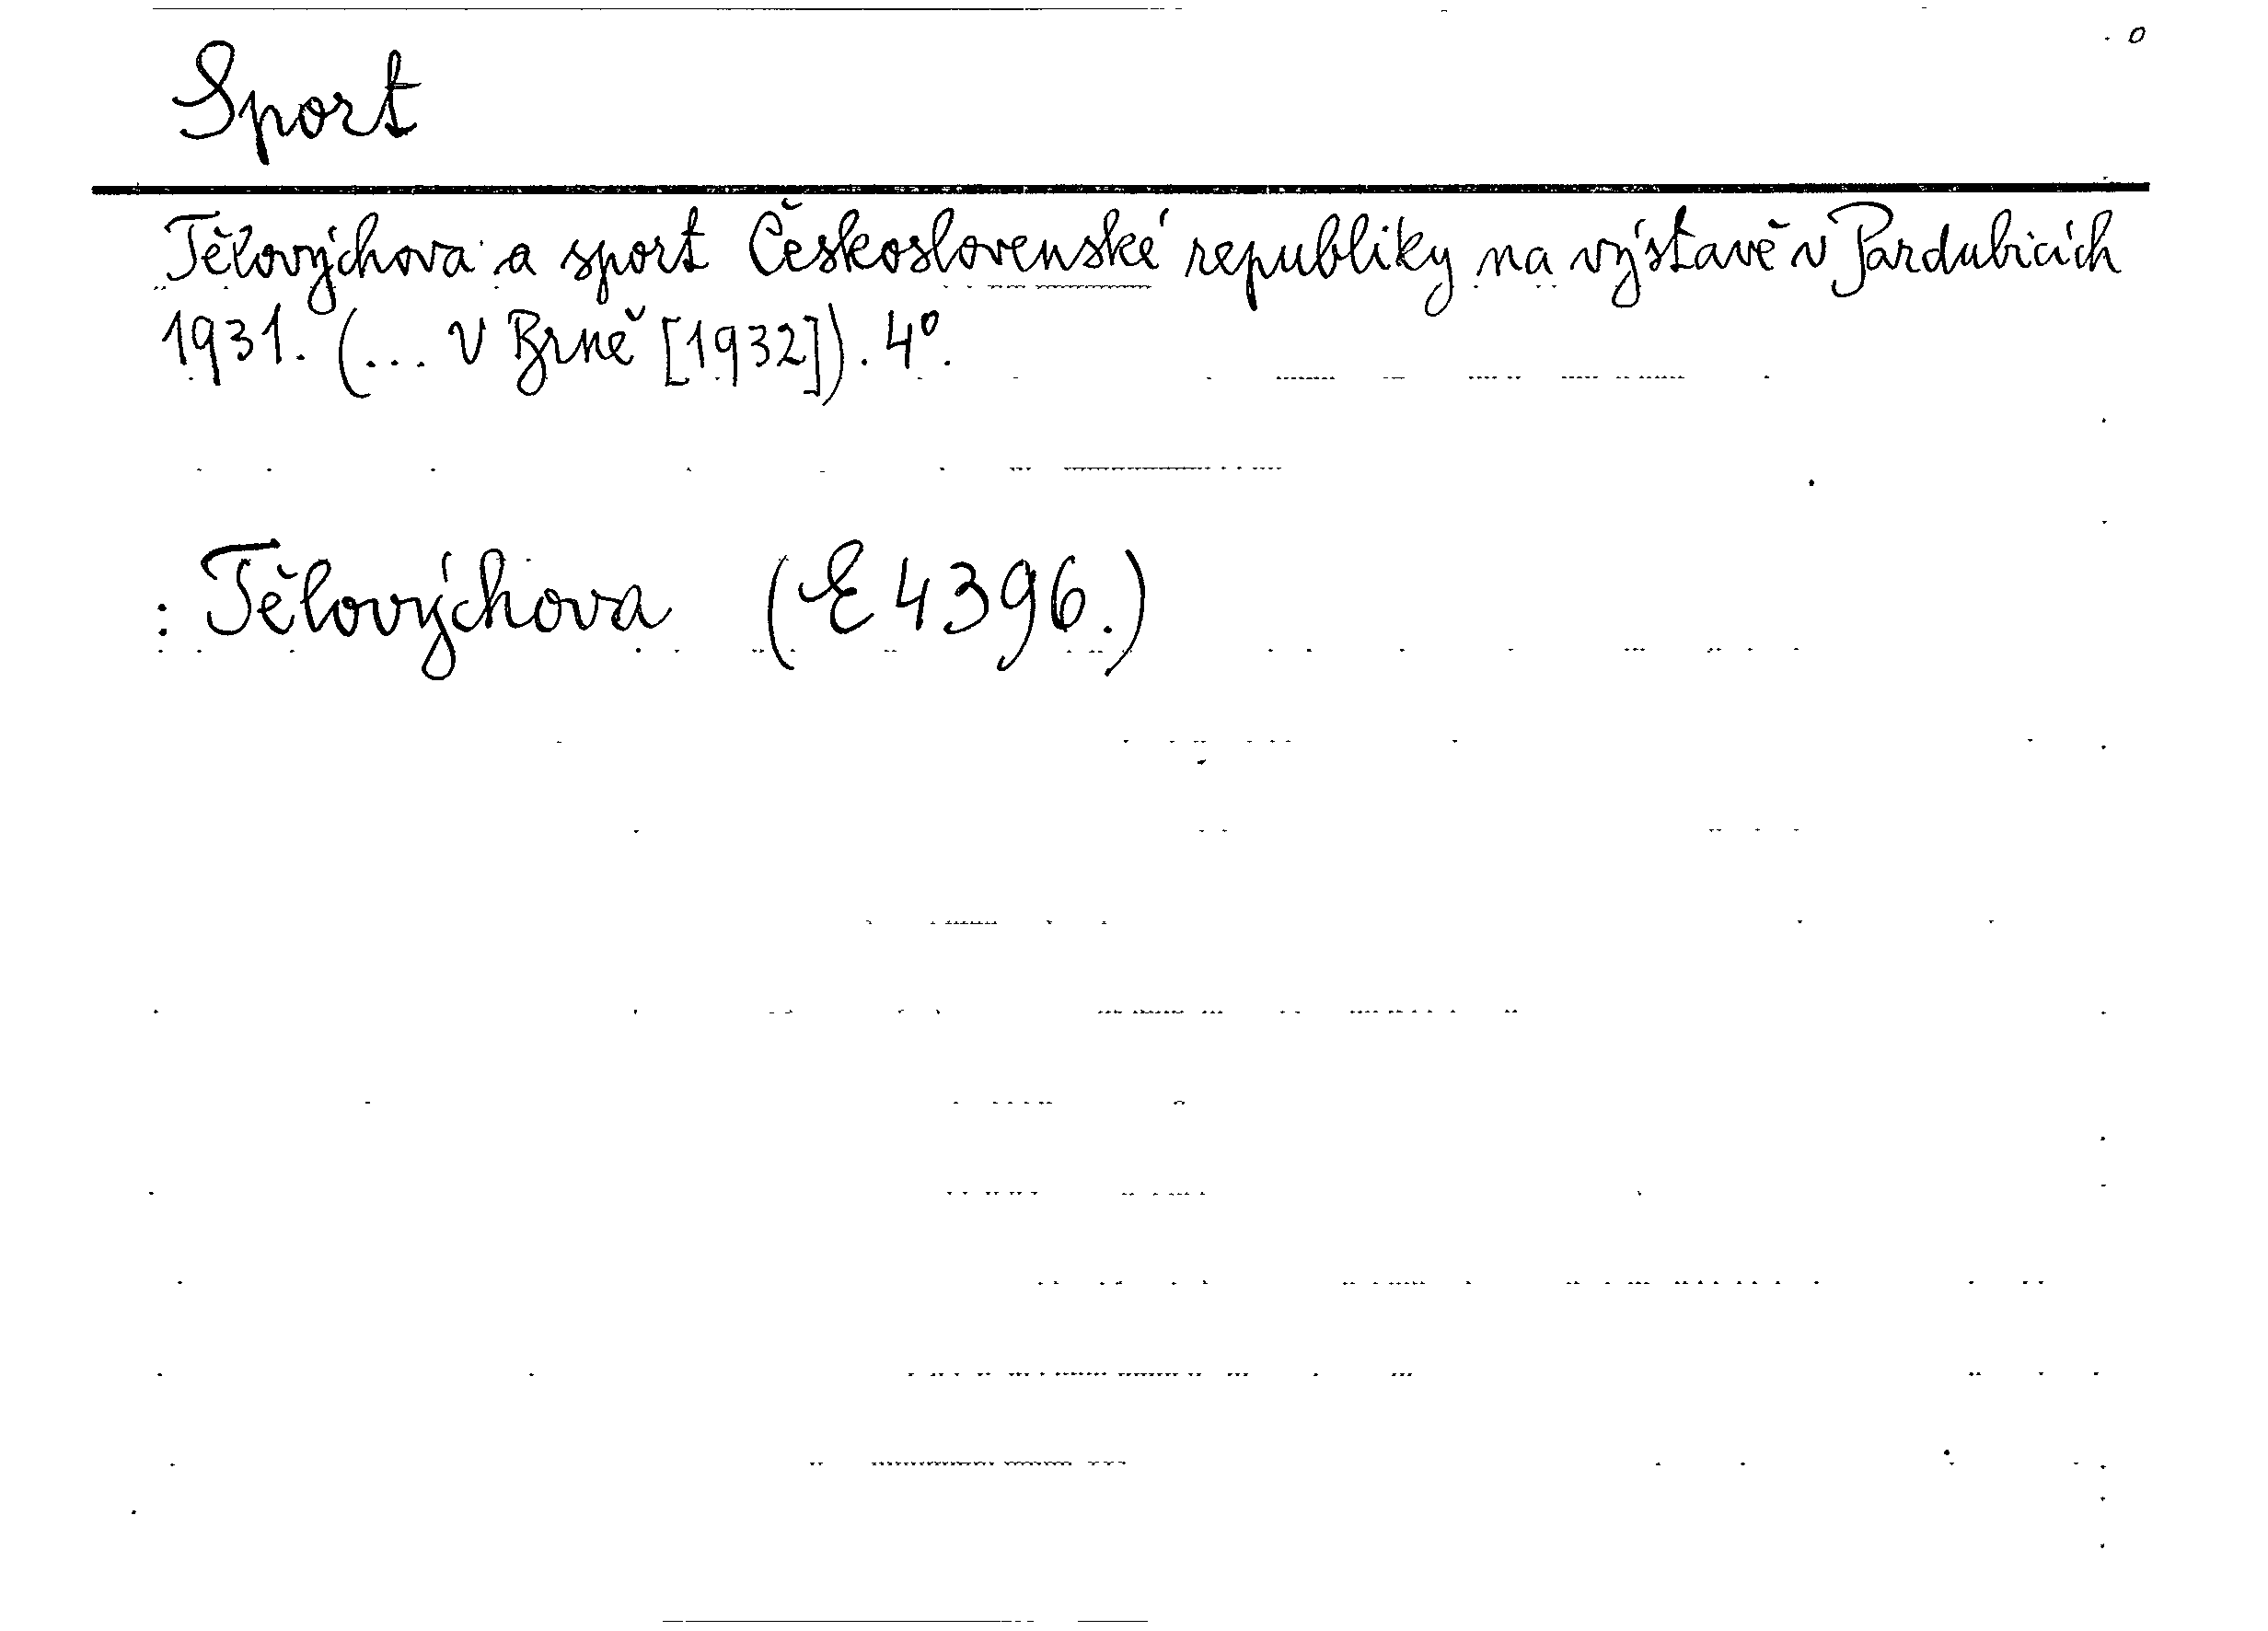 Sport
Tělovýchova a sport Československé republiky na výstavě v Pardubicích
1931. (... v Brně [1932]). 4°.
: Tělovýchova (E 4396.)